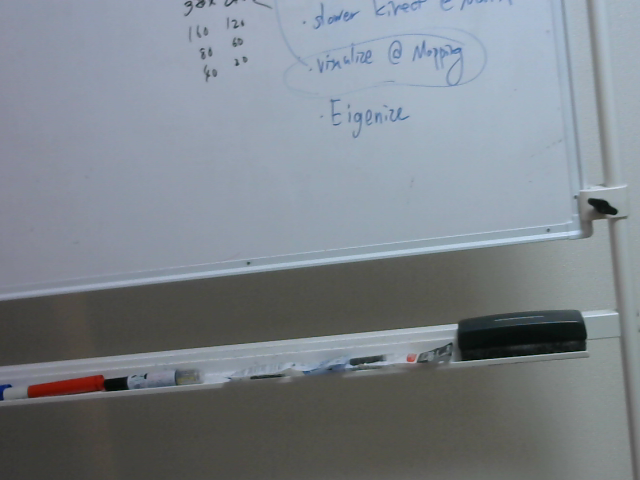 160 120
80 60
40 20
· slower kinect @
· visualize @ Mapping
· Eigenize